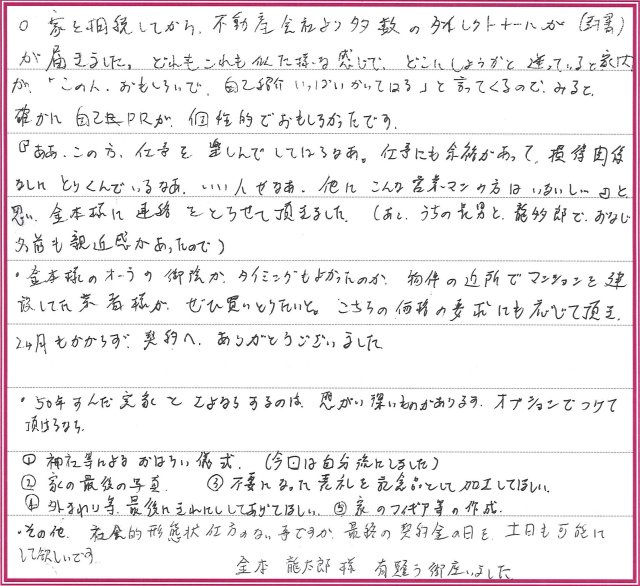 ○ 家を相続してから、不動産会社より多数のダイレクトメールが(封書)
が届きました。どれもこれも似た様な感じで、どこにしようかと迷っていると家内
が、「この人、おもしろいで、自己紹介いっぱいかいてはる」と言ってくるので、みると、
確かに自己PRが、個性的でおもしろかったです。
『ああ、この方、仕事を楽しんでしてはるなあ。仕事にも余裕があって、損得関係
なしにとりくんでいるなあ、いい人やなあ、他にこんな営業マンの方はいないし…』と
思い、金本様に連絡をとらせて頂きました。(あと、うちの長男と、龍多郎で、おなじ
名前も親近感があったので)
・金本様のオーラの御陰か、タイミングもよかったのか、物件の近所でマンションを建
設してた業者様が、ぜひ買いとりたいと。こちらの価格の要求にも応じて頂き、
2ヶ月もかからず、契約へ、ありがとうございました
・50年すんだ実家とさよならするのは、思がい深いものがあります。オプションでつけて
頂けるなら、
① 神社等によるおはらい儀式。(今回は自分流にしました)
② 家の最後の写真 ③ 不要になった表札を記念品として加工してほしい。
④ 外まわり等、最後にきれいにしてあげてほしい。⑤ 家のフィギア等の作成。
・その他、社会的形態状仕方のない事ですが、最終の契約金の日を、土日も可能に
して欲しいです
金本 龍太郎 様 有難う御座いました